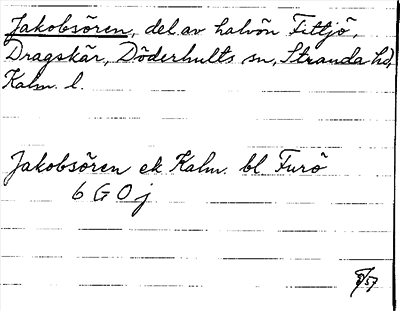 Jakobsören, del. av halvön Fittjö,
Dragskär, Döderhults sn, Stranda hd,
Kalm. l.
Jakobsören ek Kalm. bl Furö
6 G 0 j